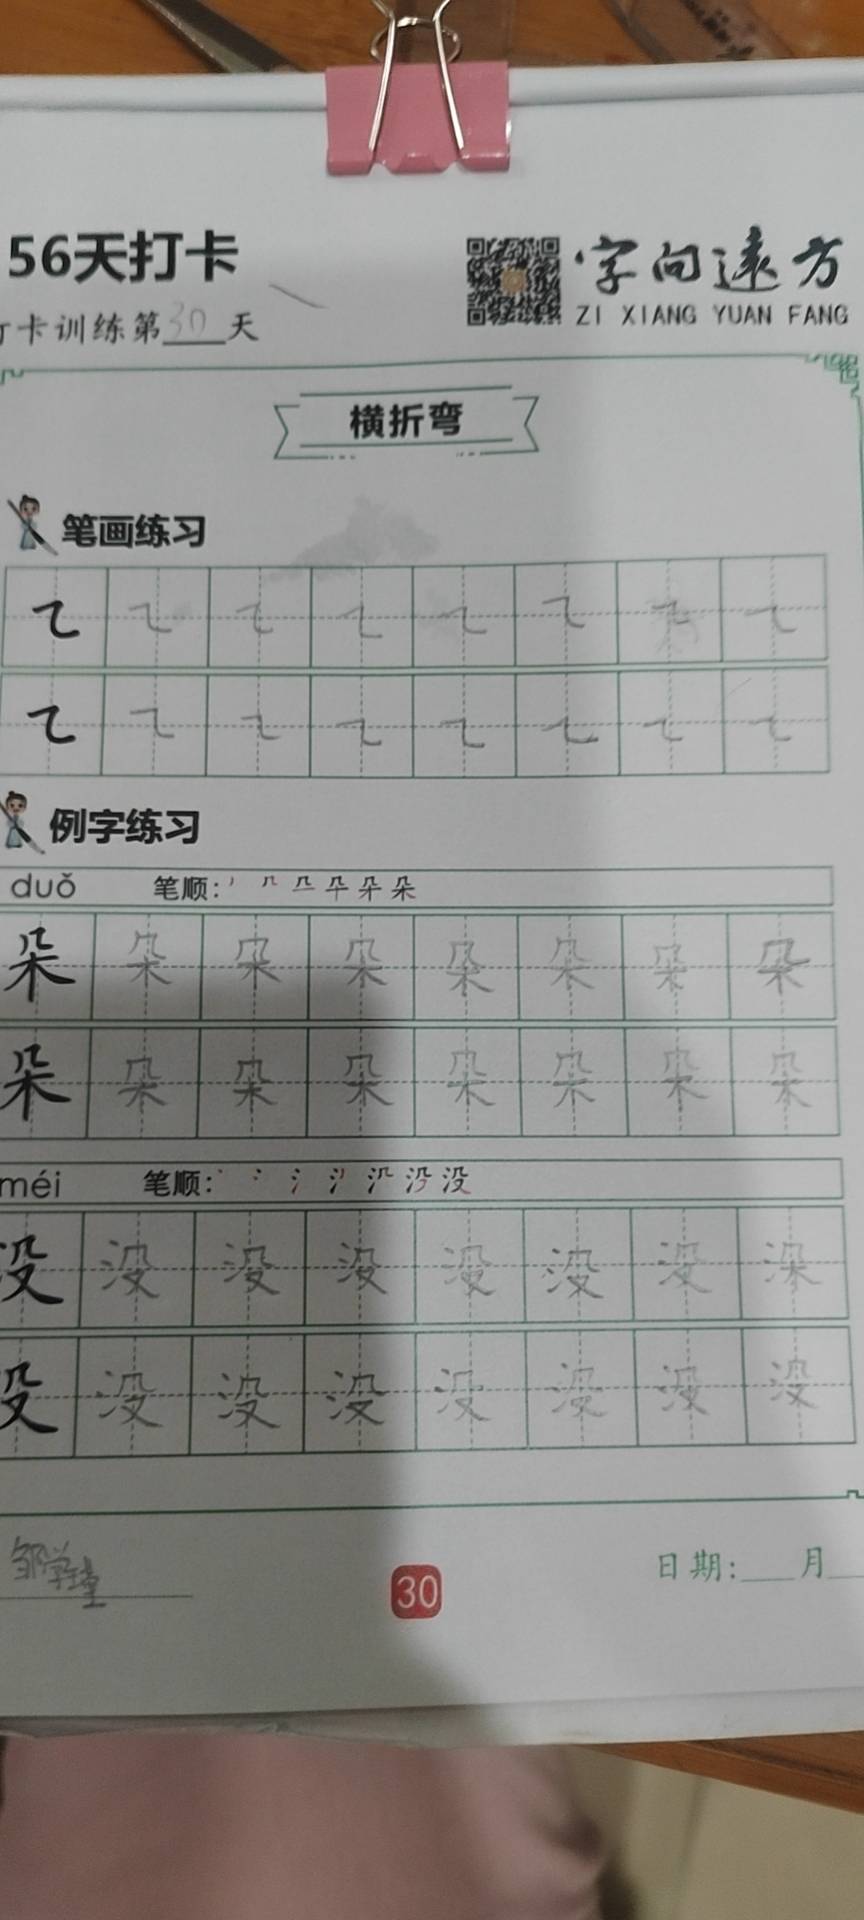 56天打卡
字向远方
ZI XIANG YUAN FANG
打卡训练第30天
横折弯
笔画练习
例字练习
duǒ 笔顺: 朵
朵 朵 朵 朵 朵 朵 朵 朵
朵 朵 朵 朵 朵 朵 朵 朵
méi 笔顺: 没
没 没 没 没 没 没 没 深
没 没 没 没 没 没 没 没
邹学瑾
30
日期:___月